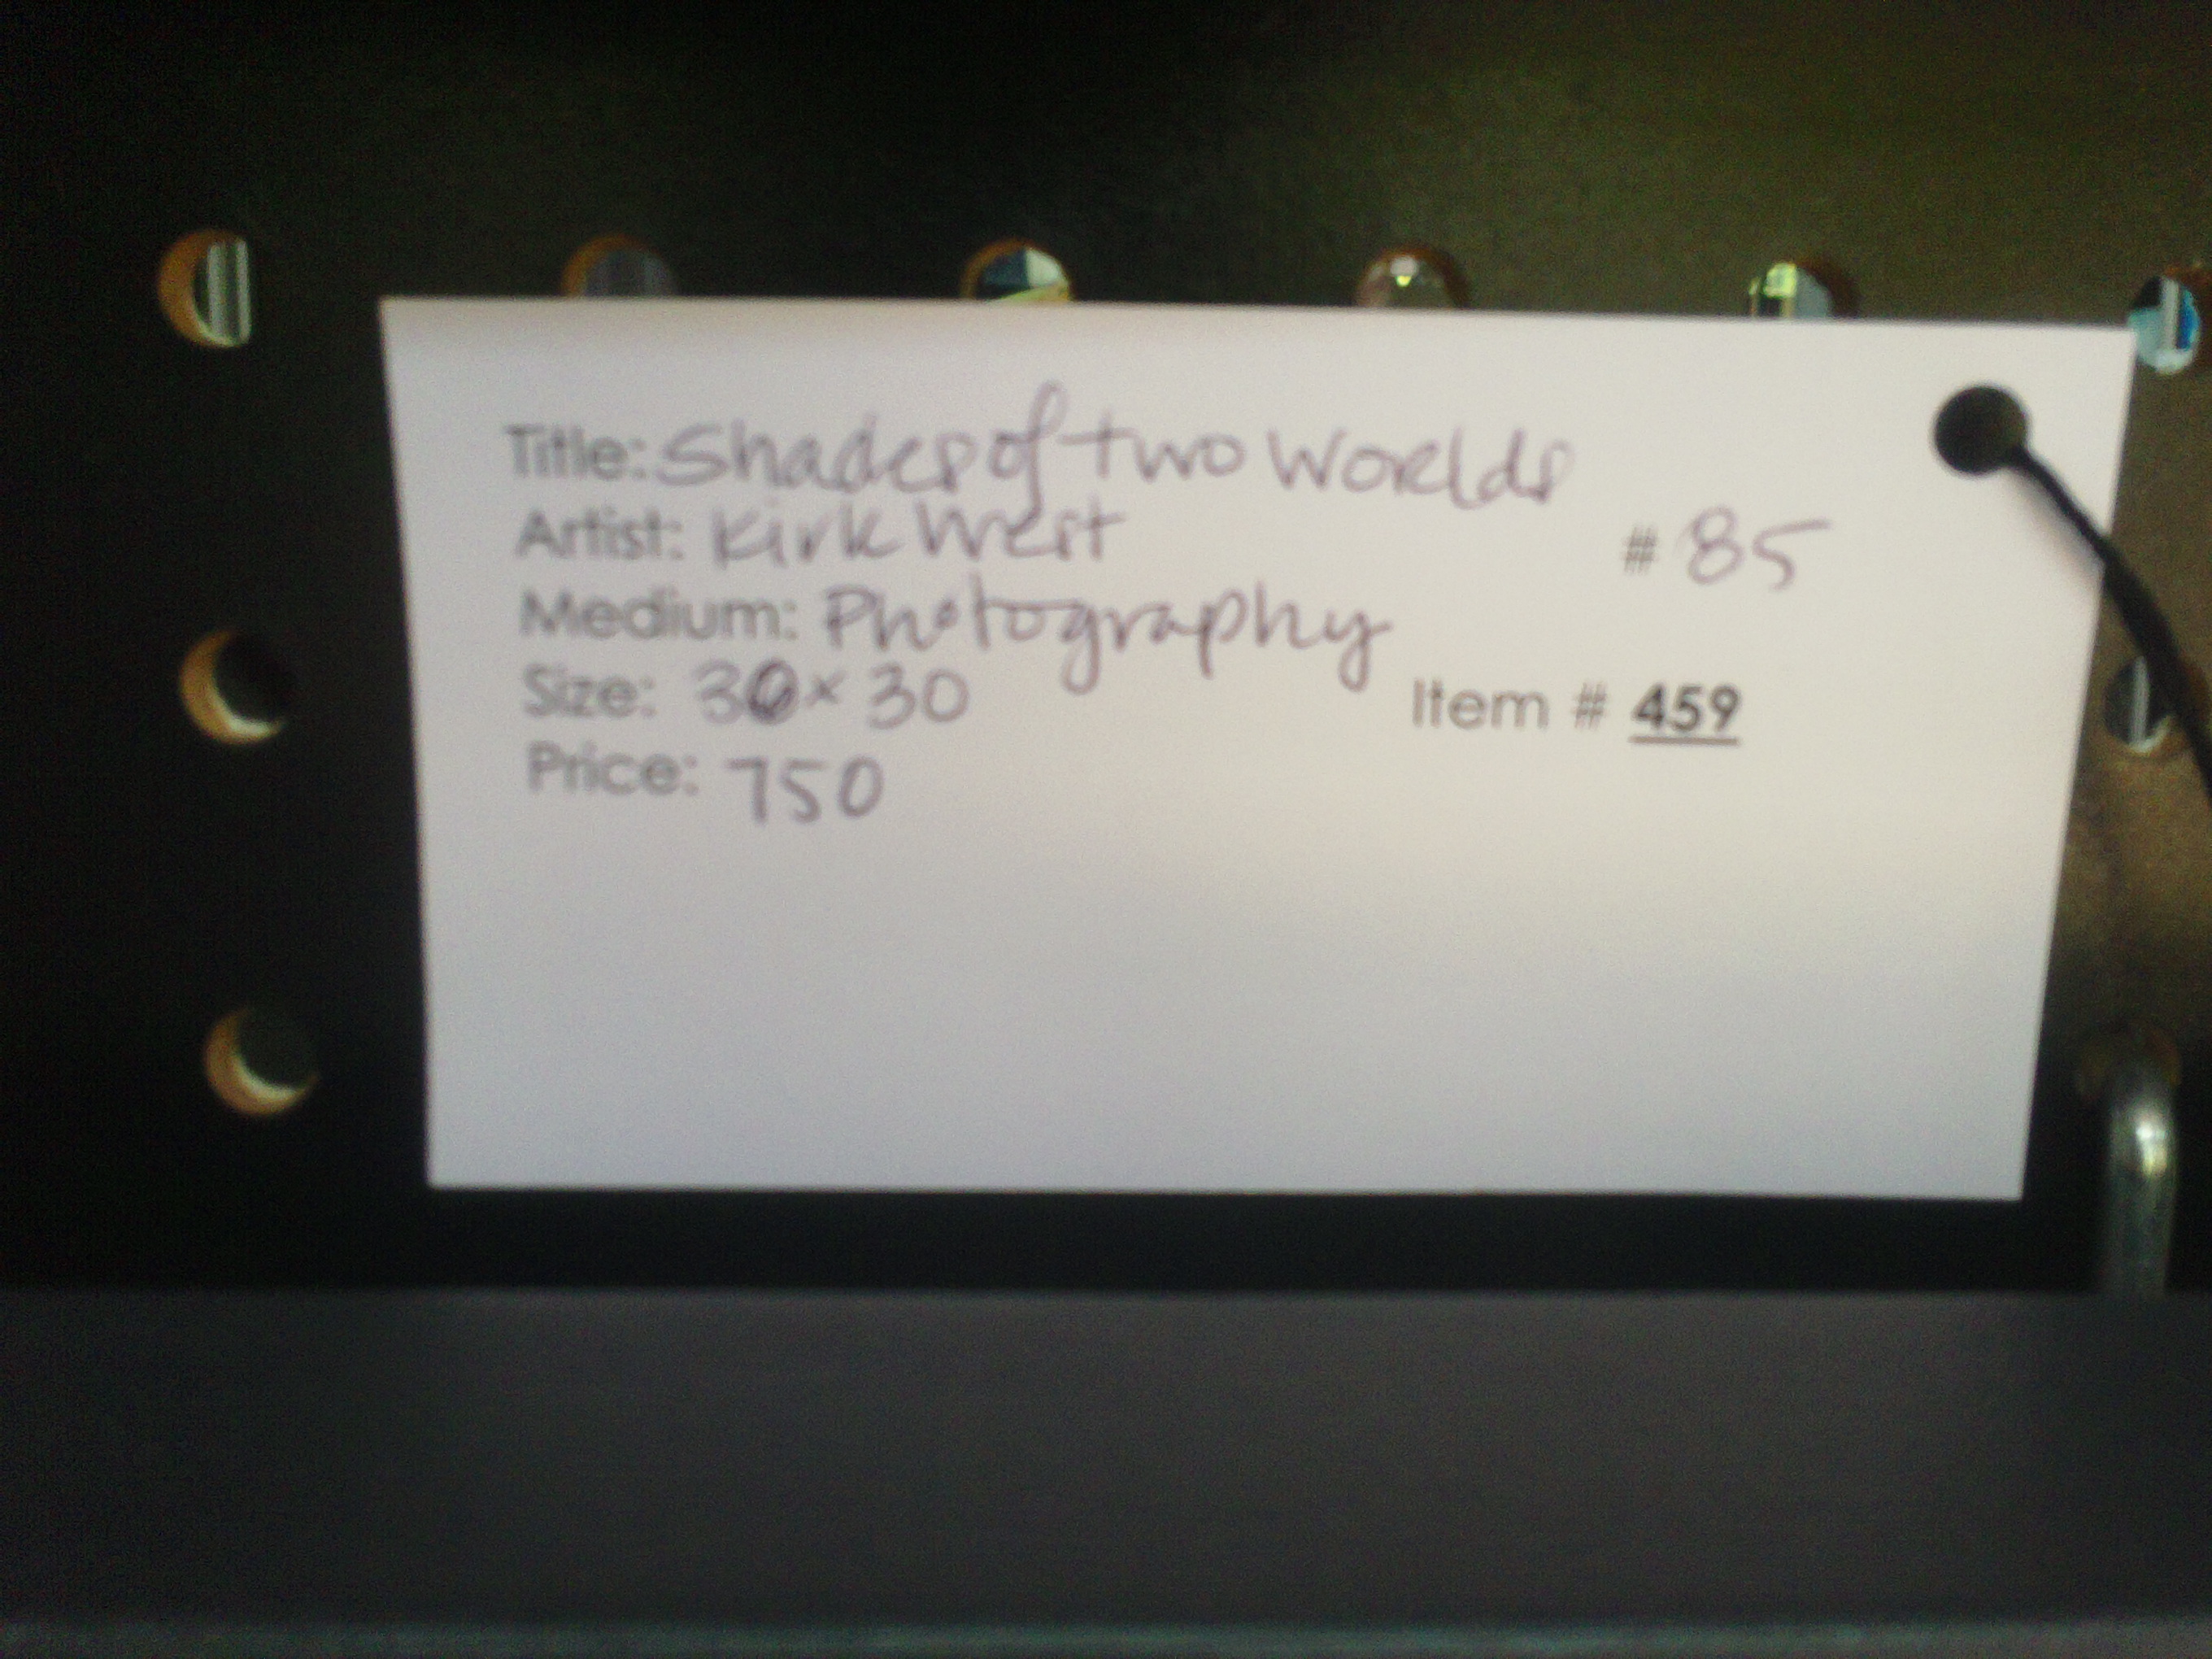 Title: Shades of two Worlds
Artist: Kirk West
# 85
Medium: Photography
Size: 30 x 30
Item # 459
Price: 750